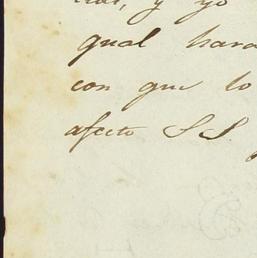 y yo
qual hara
con que lo
afecto S S